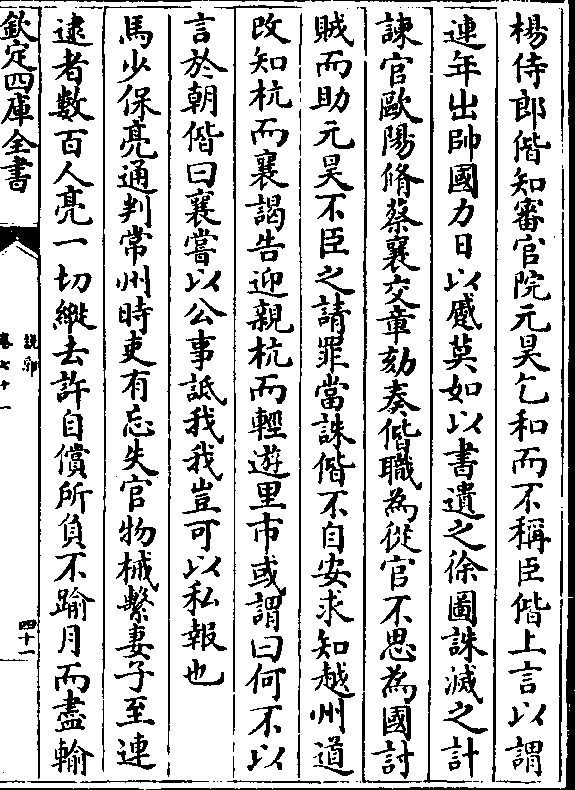 楊侍郎偕知審官院元昊乞和而不稱臣偕上言以謂
連年出帥國力日以蹙莫如以書遺之徐圖誅滅之計
諫官歐陽脩蔡襄交章劾奏偕職為從官不思為國討
賊而助元昊不臣之請罪當誅偕不自安求知越州道
改知杭而襄謁告迎親杭而輕遊里市或謂曰何不以
言於朝偕曰襄嘗以公事詆我我豈可以私報也
馬少保亮通判常州時吏有忘失官物械繫妻子至連
逮者數百人亮一切縱去許自償所負不踰月而盡輸
欽定四庫全書
說郛
卷七十一
四十一